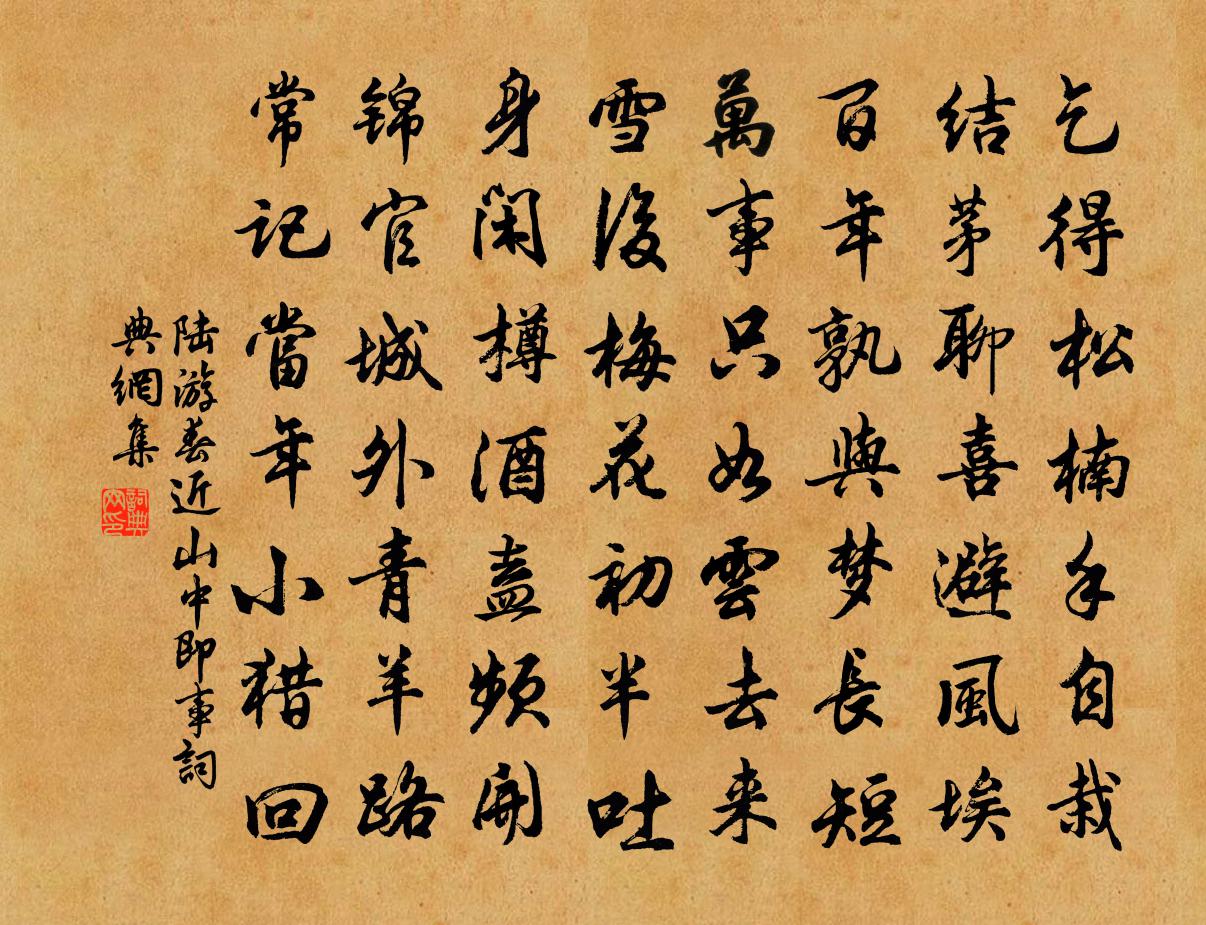 乞得松楠手自栽
结茅聊喜避風埃
百年孰與梦長短
萬事只如雲去来
雪後梅花初半吐
身闲樽酒盏频開
锦官城外青羊路
常记當年小猎回
陆游春近山中即事詞
典網集
詞典网印